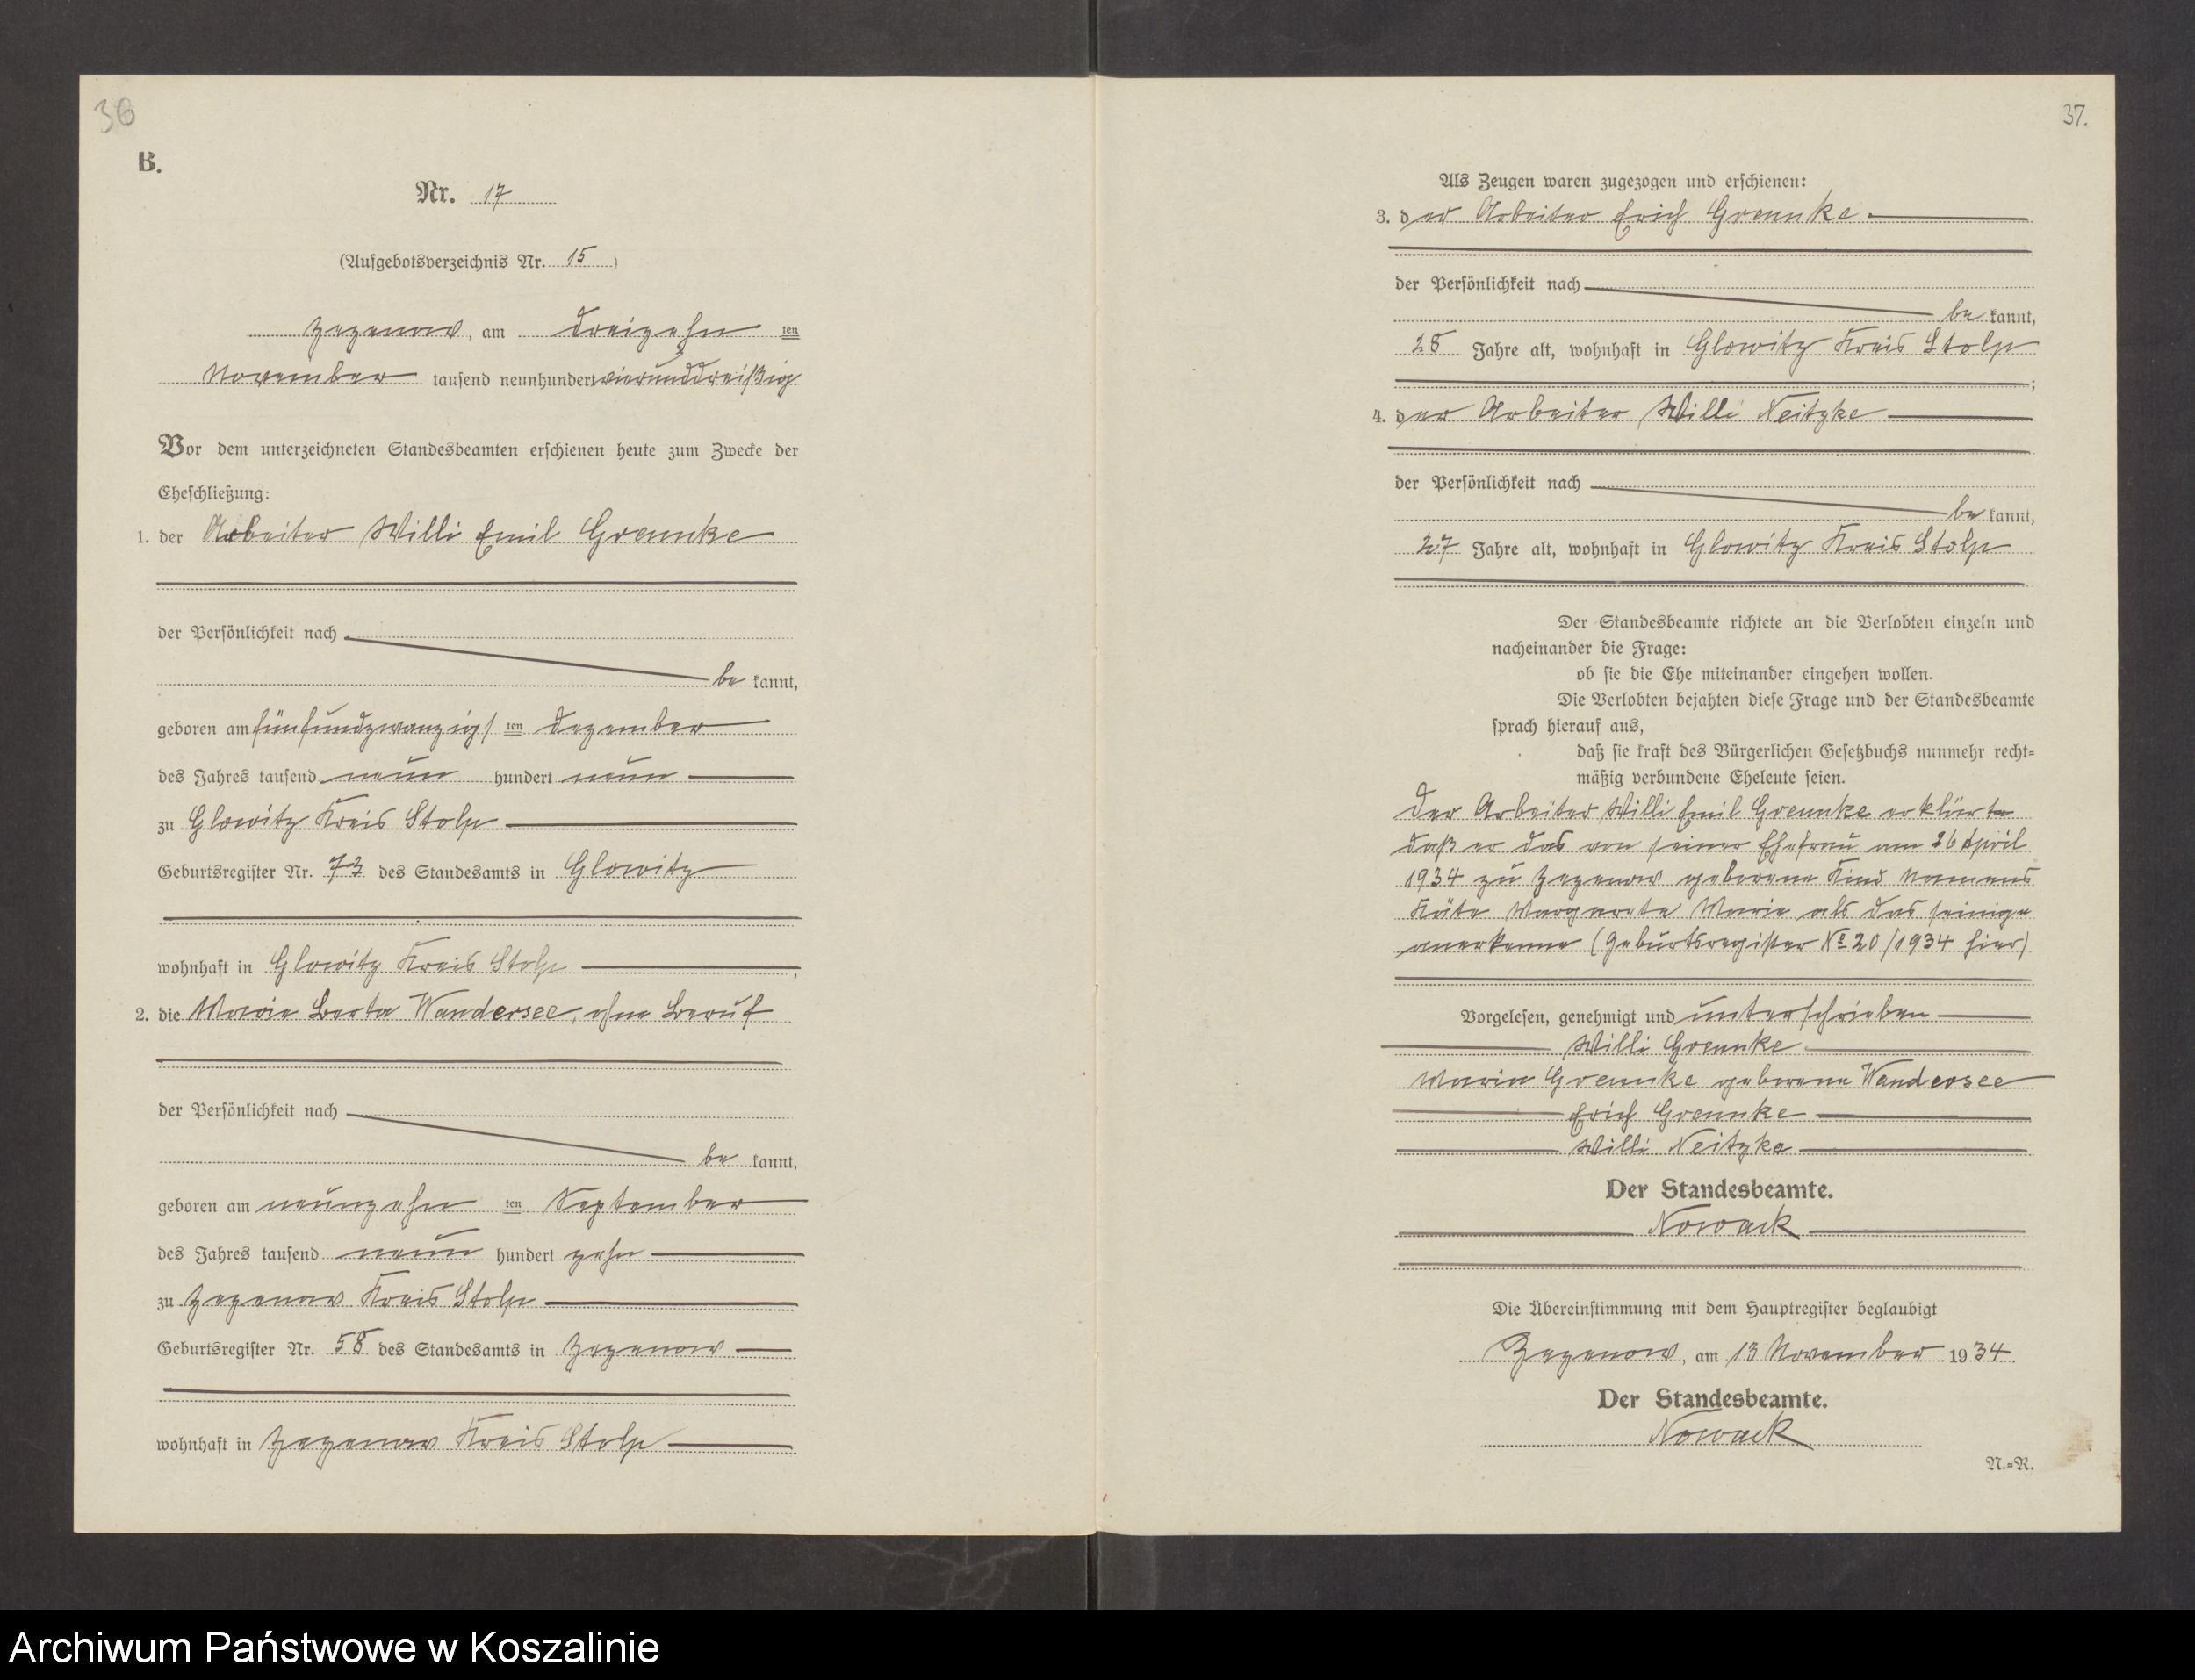 36
B.
Nr. 17
(Aufgebotsverzeichnis Nr. 15)
Zezenow, am dreizehn ten
November tausend neunhundertvierunddreißig
Vor dem unterzeichneten Standesbeamten erschienen heute zum Zwecke der
Eheschließung:
1. der Arbeiter Willi Emil Grennke
der Persönlichkeit nach
be kannt,
geboren am fünfundzwanzigs ten Dezember
des Jahres tausend neun hundert neun
zu Glowitz Kreis Stolp
Geburtsregister Nr. 73 des Standesamts in Glowitz
wohnhaft in Glowitz Kreis Stolp,
2. die Marie Berta Wandersee, ohne Beruf
der Persönlichkeit nach
be kannt,
geboren am neunzehn ten September
des Jahres tausend neun hundert zehn
zu Zezenow Kreis Stolp
Geburtsregister Nr. 58 des Standesamts in Zezenow
wohnhaft in Zezenow Kreis Stolp
37.
Als Zeugen waren zugezogen und erschienen:
3. der Arbeiter Erich Grennke
der Persönlichkeit nach
be kannt,
28 Jahre alt, wohnhaft in Glowitz Kreis Stolp
;
4. der Arbeiter Willi Neitzke
der Persönlichkeit nach
be kannt,
27 Jahre alt, wohnhaft in Glowitz Kreis Stolp
Der Standesbeamte richtete an die Verlobten einzeln und
nacheinander die Frage:
ob sie die Ehe miteinander eingehen wollen.
Die Verlobten bejahten diese Frage und der Standesbeamte
sprach hierauf aus,
daß sie kraft des Bürgerlichen Gesetzbuchs nunmehr recht=
mäßig verbundene Eheleute seien.
Der Arbeiter Willi Emil Grennke erklärte
daß er das von seiner Ehefrau am 26 April
1934 zu Zezenow geborene Kind Namens
Käte Margarete Marie als das seinige
anerkenne (Geburtsregister No 20/1934 hier)
Vorgelesen, genehmigt und unterschrieben
Willi Grennke
Marie Grennke geborene Wandersee
Erich Grennke
Willi Neitzke
Der Standesbeamte.
Nowack
Die Übereinstimmung mit dem Hauptregister beglaubigt
Zezenow, am 13 November 1934.
Der Standesbeamte.
Nowack
N.=R.
Archiwum Państwowe w Koszalinie